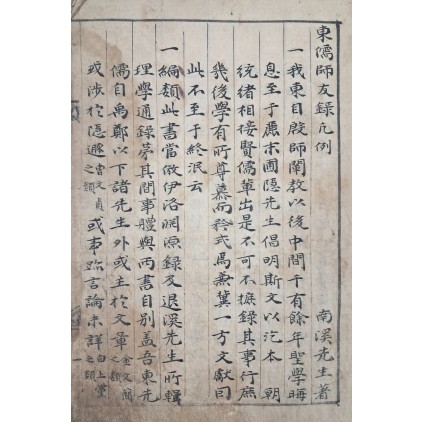 東儒師友錄凡例
南溪先生著
一我東自殷師闡教以後中間千有餘年聖學晦
息至于麗末圃隱先生倡明斯文以迄本朝
統緒相接賢儒輩出是不可不摭錄其事行庶
幾後學有所尊慕而矜式焉兼冀一方文獻因
此不至于終泯云
一編類此書當倣伊洛淵源錄及退溪先生所輯
理學通錄第其間事體與兩書自別蓋吾東先
儒自寒鄭以下諸先生外或主於文章金文簡之類
或涉於隱遯曺文貞之類或事跡言論未詳白上堂之類
一